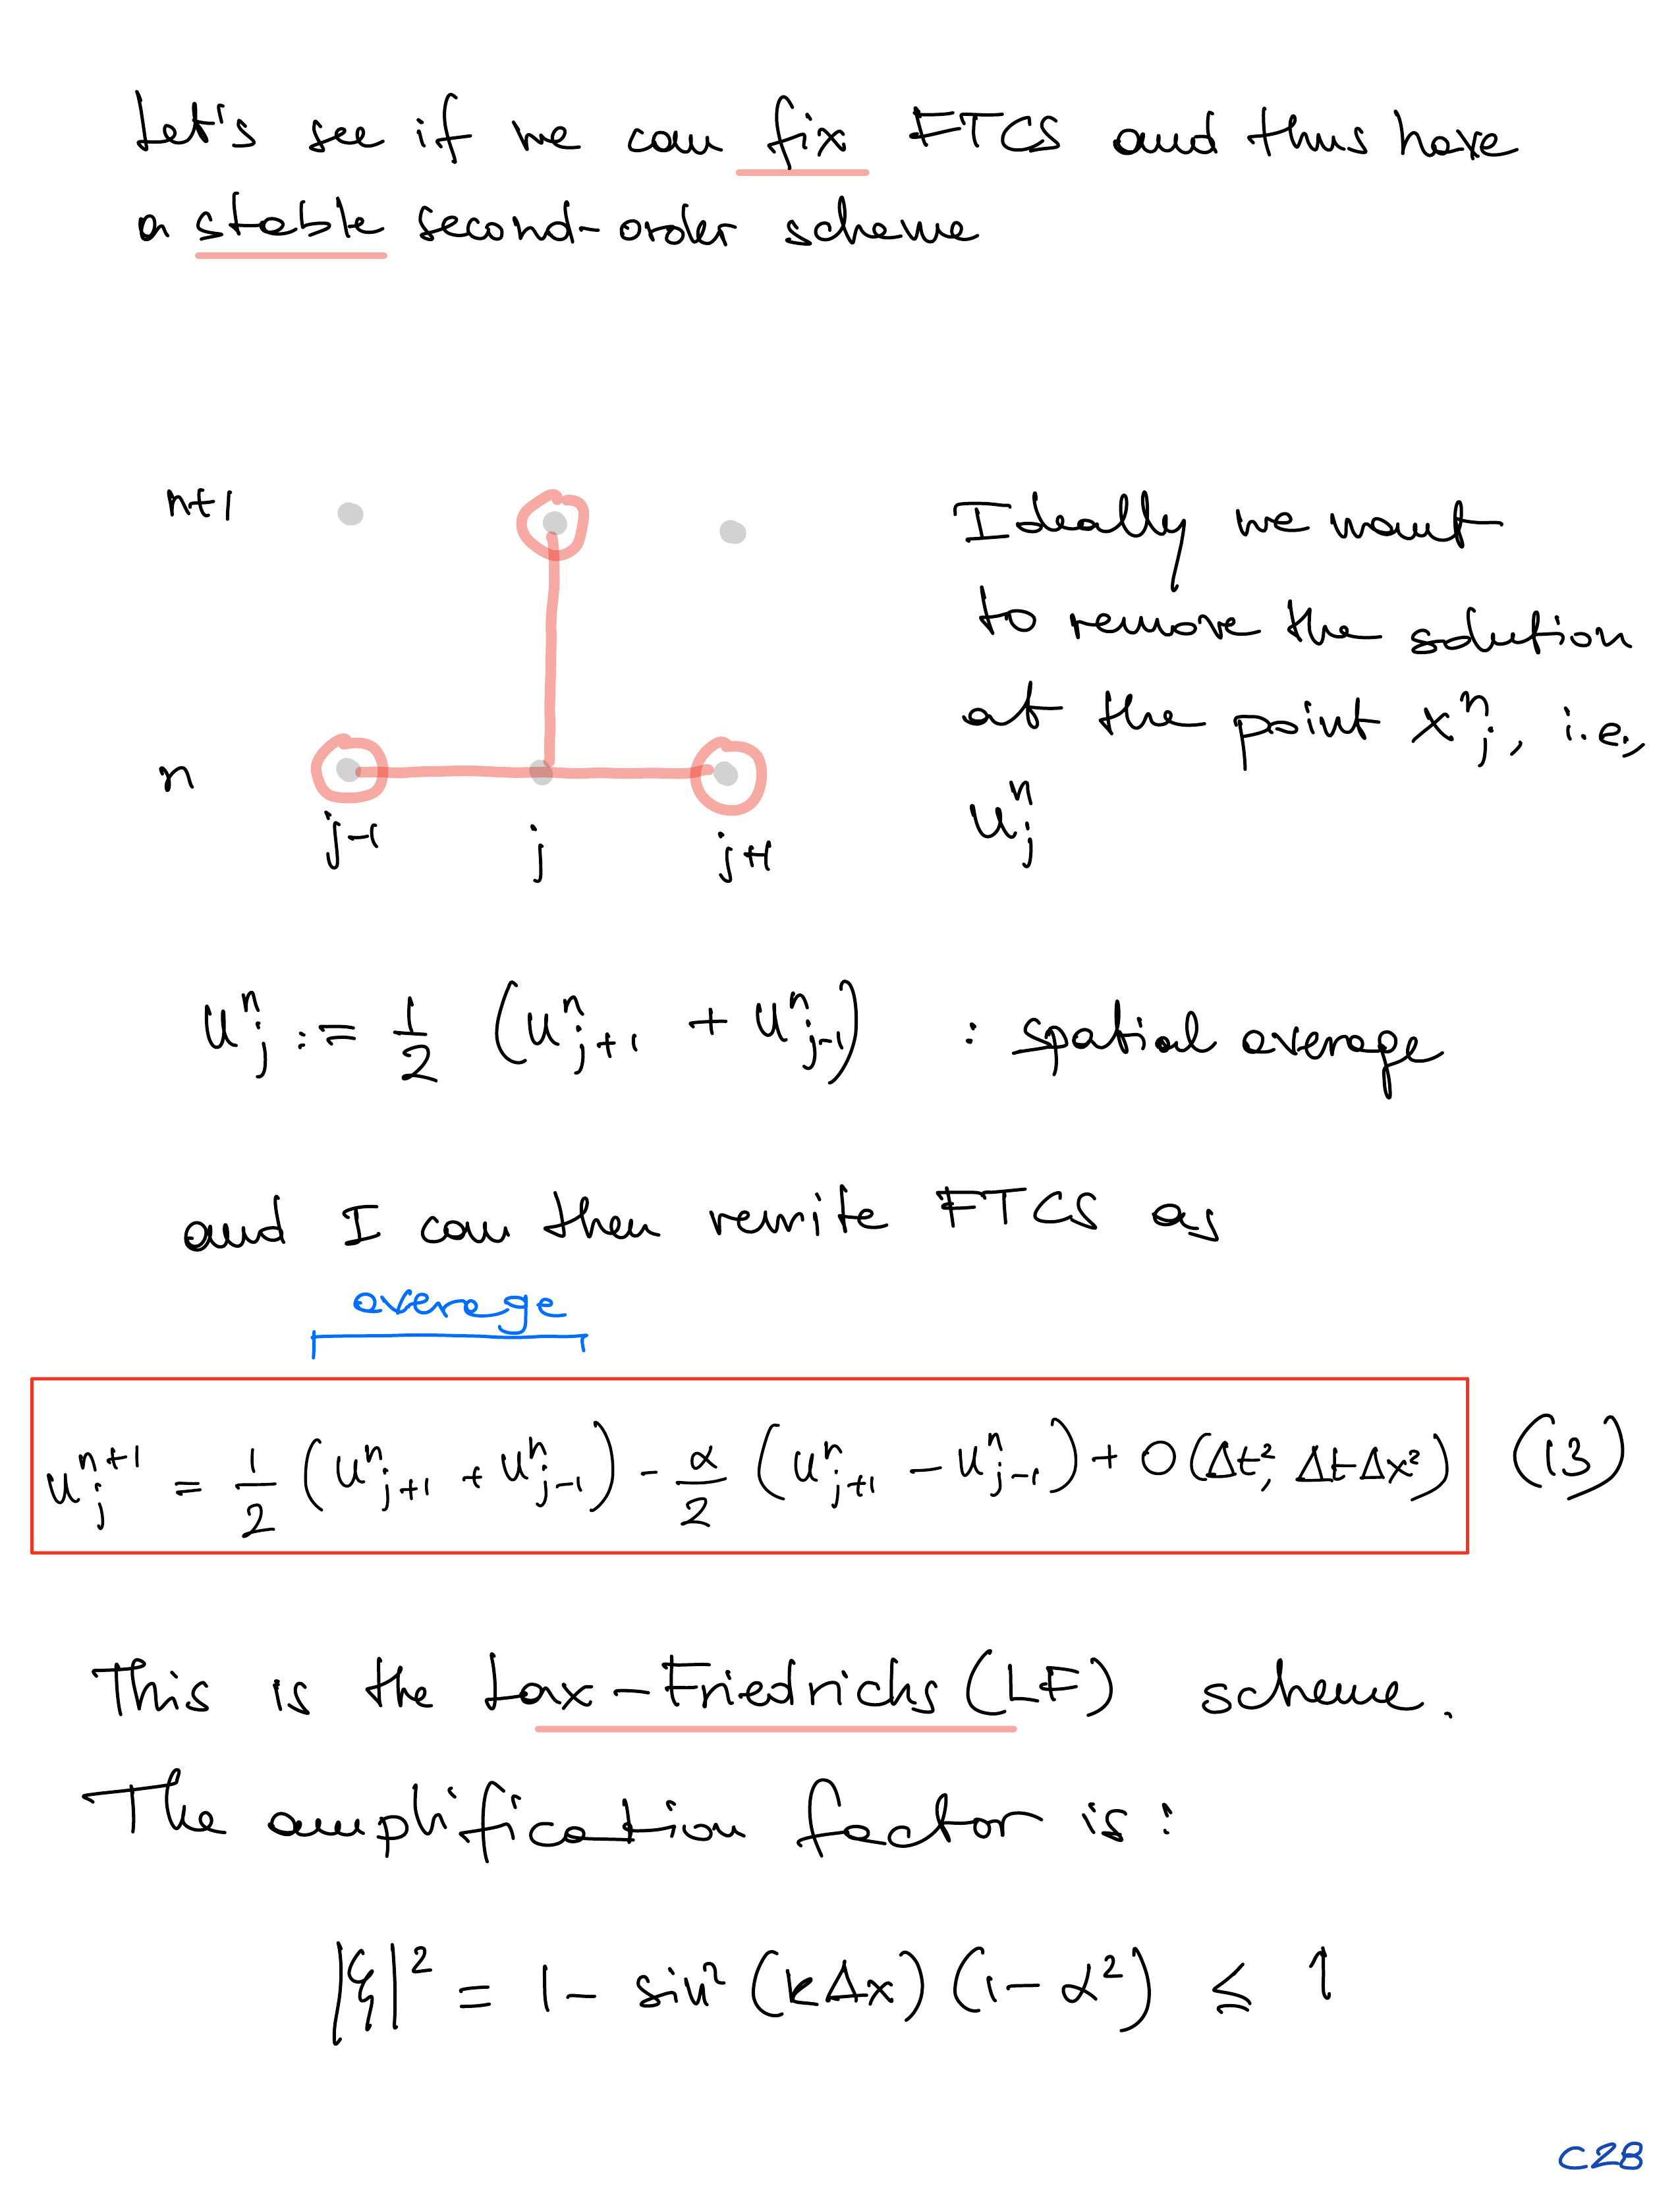 Let's see if we can fix FTCS and thus have
a stable second-order scheme
n+1
Ideally we want
to remove the solution
at the point xⁿⱼ, i.e.,
uⁿⱼ
n
j-1 j j+1
uⁿⱼ := 1/2 (uⁿⱼ₊₁ + uⁿⱼ₋₁) : spatial average
and I can then rewrite FTCS as
average
uⁿ⁺¹ⱼ = 1/2 (uⁿⱼ₊₁ + uⁿⱼ₋₁) - α/2 (uⁿⱼ₊₁ - uⁿⱼ₋₁) + O(Δt², ΔtΔx²) (13)
This is the Lax-Friedrichs (LF) scheme.
The amplification factor is:
|ξ|² = 1 - sin² (kΔx) (1 - α²) ≤ 1
C28